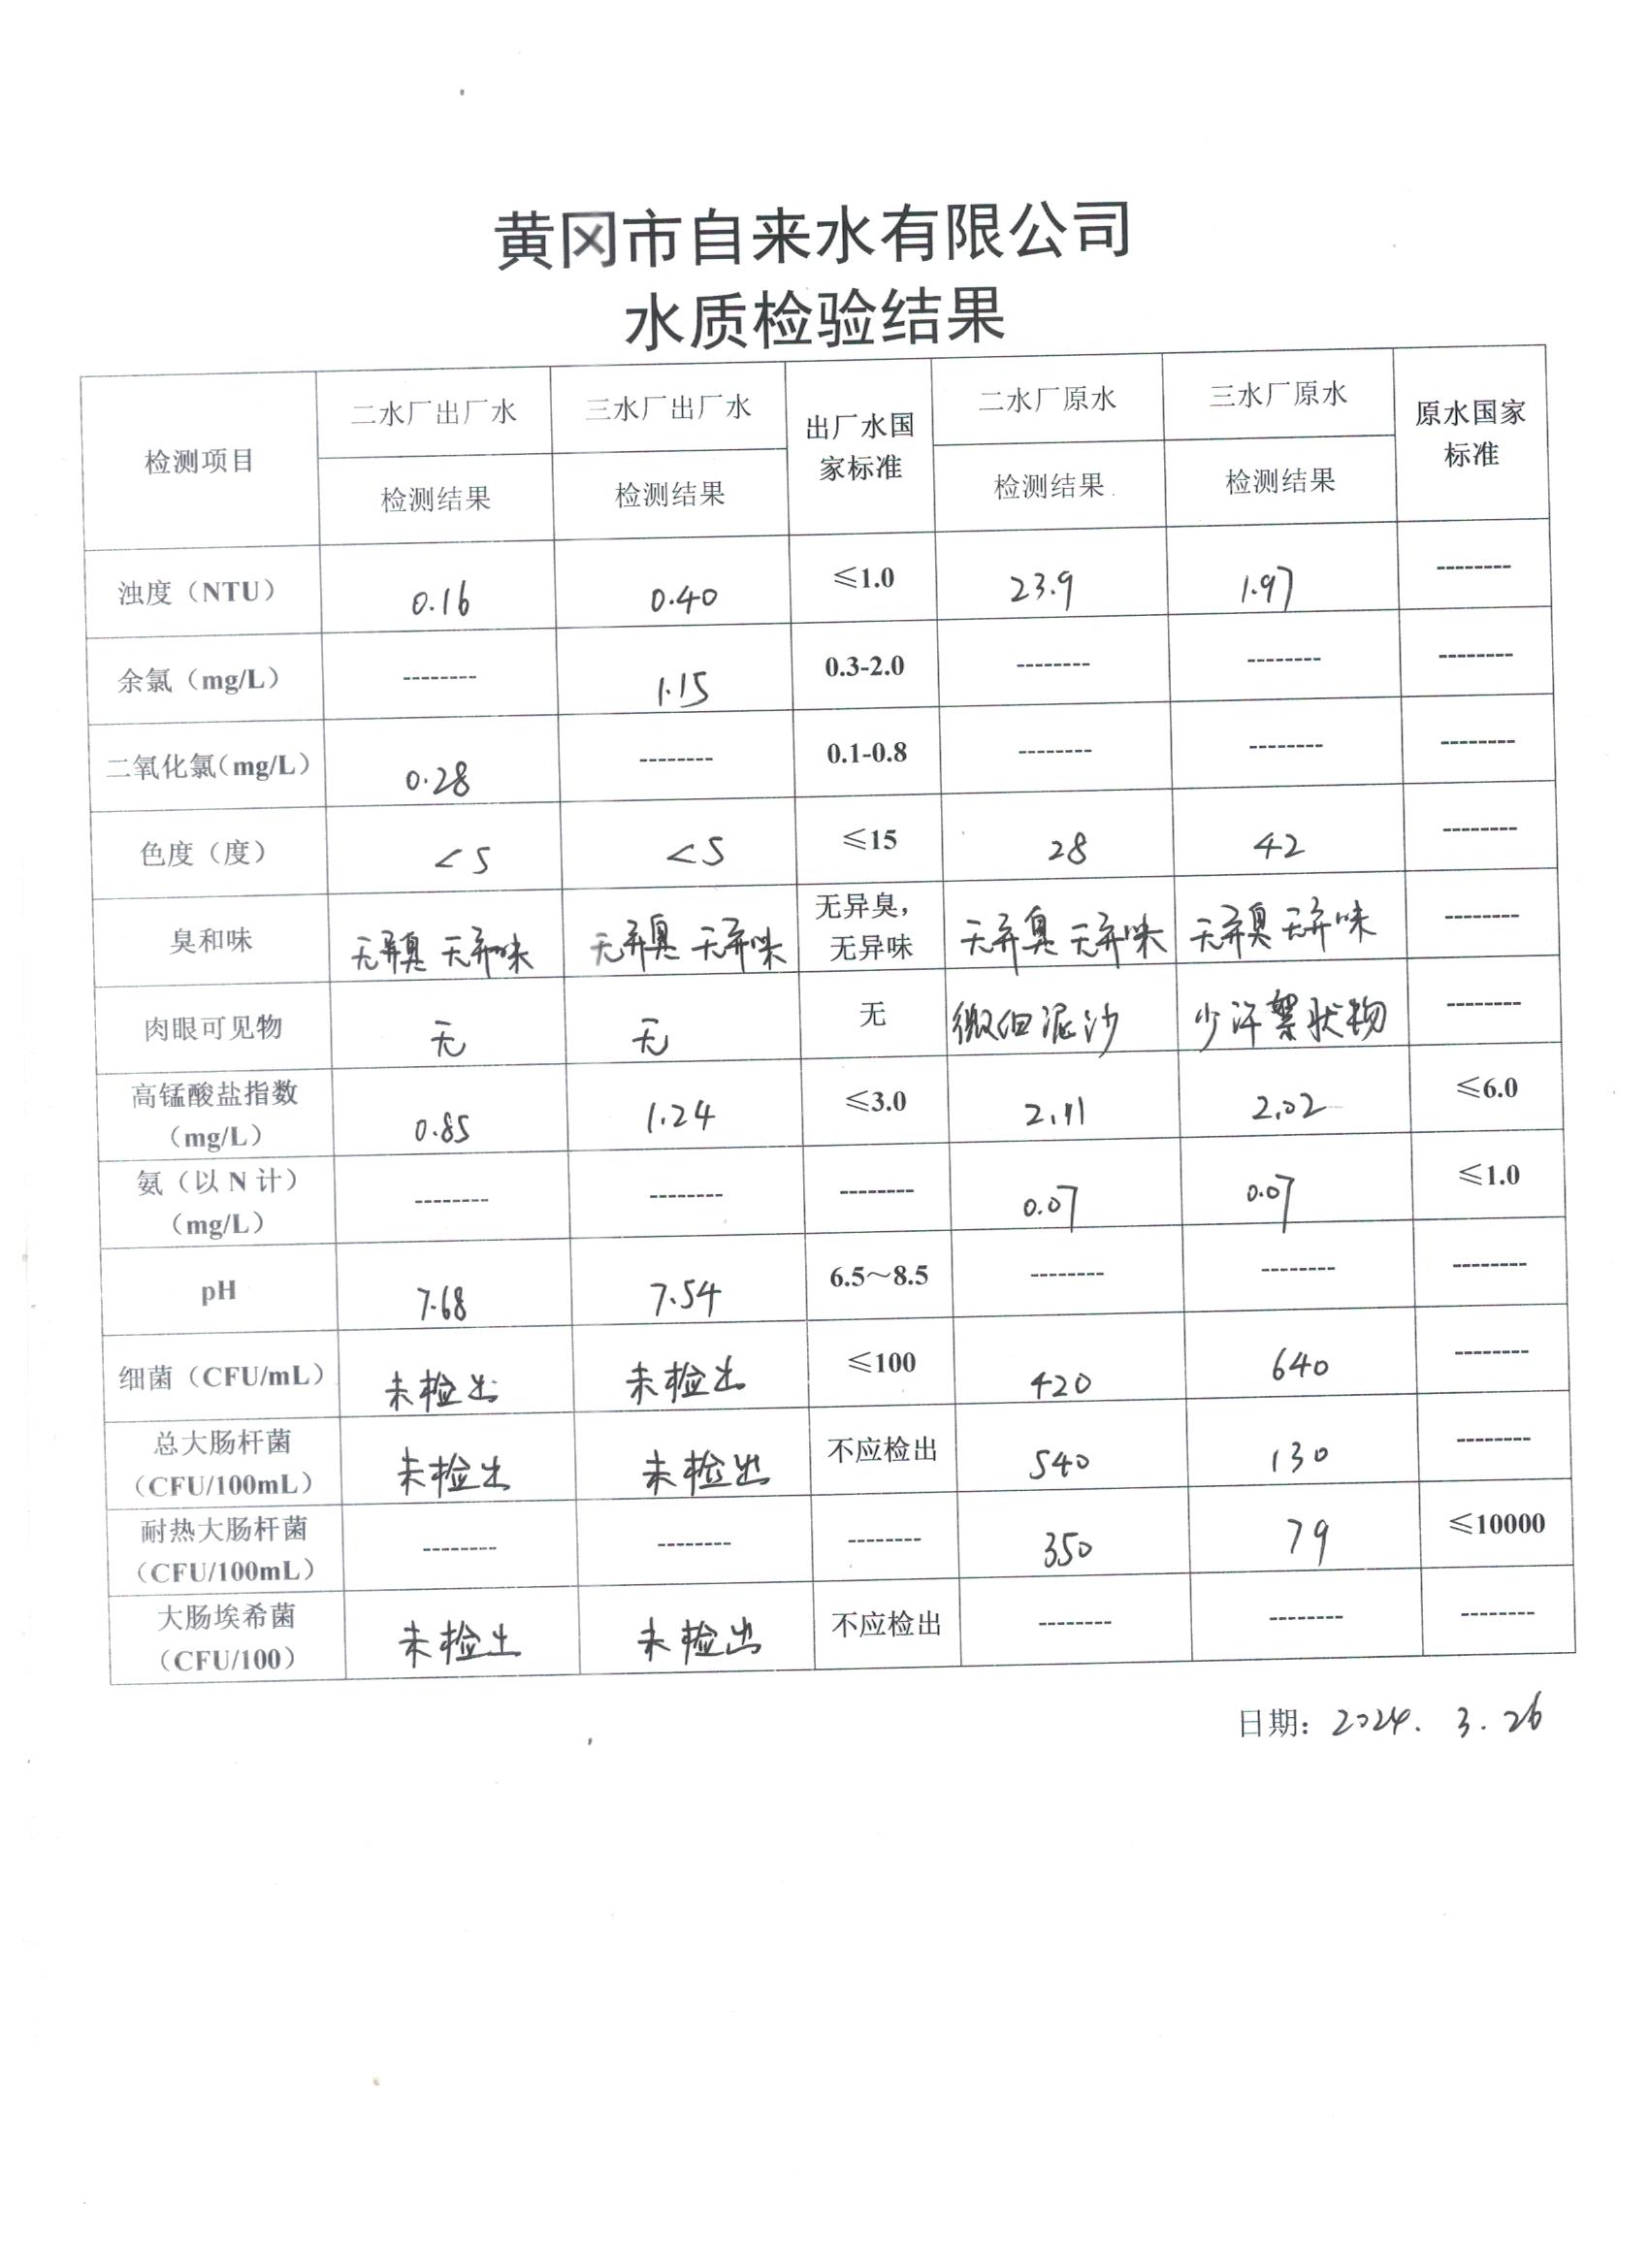 黄冈市自来水有限公司
水质检验结果
检测项目 二水厂出厂水 三水厂出厂水 出厂水国家标准 二水厂原水 三水厂原水 原水国家标准
检测结果 检测结果 检测结果 检测结果
浊度（NTU） 0.16 0.40 ≤1.0 23.9 1.97 --------
余氯（mg/L） -------- 1.15 0.3-2.0 -------- -------- --------
二氧化氯（mg/L） 0.28 -------- 0.1-0.8 -------- -------- --------
色度（度） <5 <5 ≤15 28 42 --------
臭和味 无异臭 无异味 无异臭 无异味 无异臭，无异味 无异臭 无异味 无异臭 无异味 --------
肉眼可见物 无 无 无 微细泥沙 少许絮状物 --------
高锰酸盐指数（mg/L） 0.85 1.24 ≤3.0 2.11 2.02 ≤6.0
氨（以 N 计）（mg/L） -------- -------- -------- 0.07 0.07 ≤1.0
pH 7.68 7.54 6.5～8.5 -------- -------- --------
细菌（CFU/mL） 未检出 未检出 ≤100 420 640 --------
总大肠杆菌（CFU/100mL） 未检出 未检出 不应检出 540 130 --------
耐热大肠杆菌（CFU/100mL） -------- -------- -------- 350 79 ≤10000
大肠埃希菌（CFU/100） 未检出 未检出 不应检出 -------- -------- --------
日期：2024. 3. 26